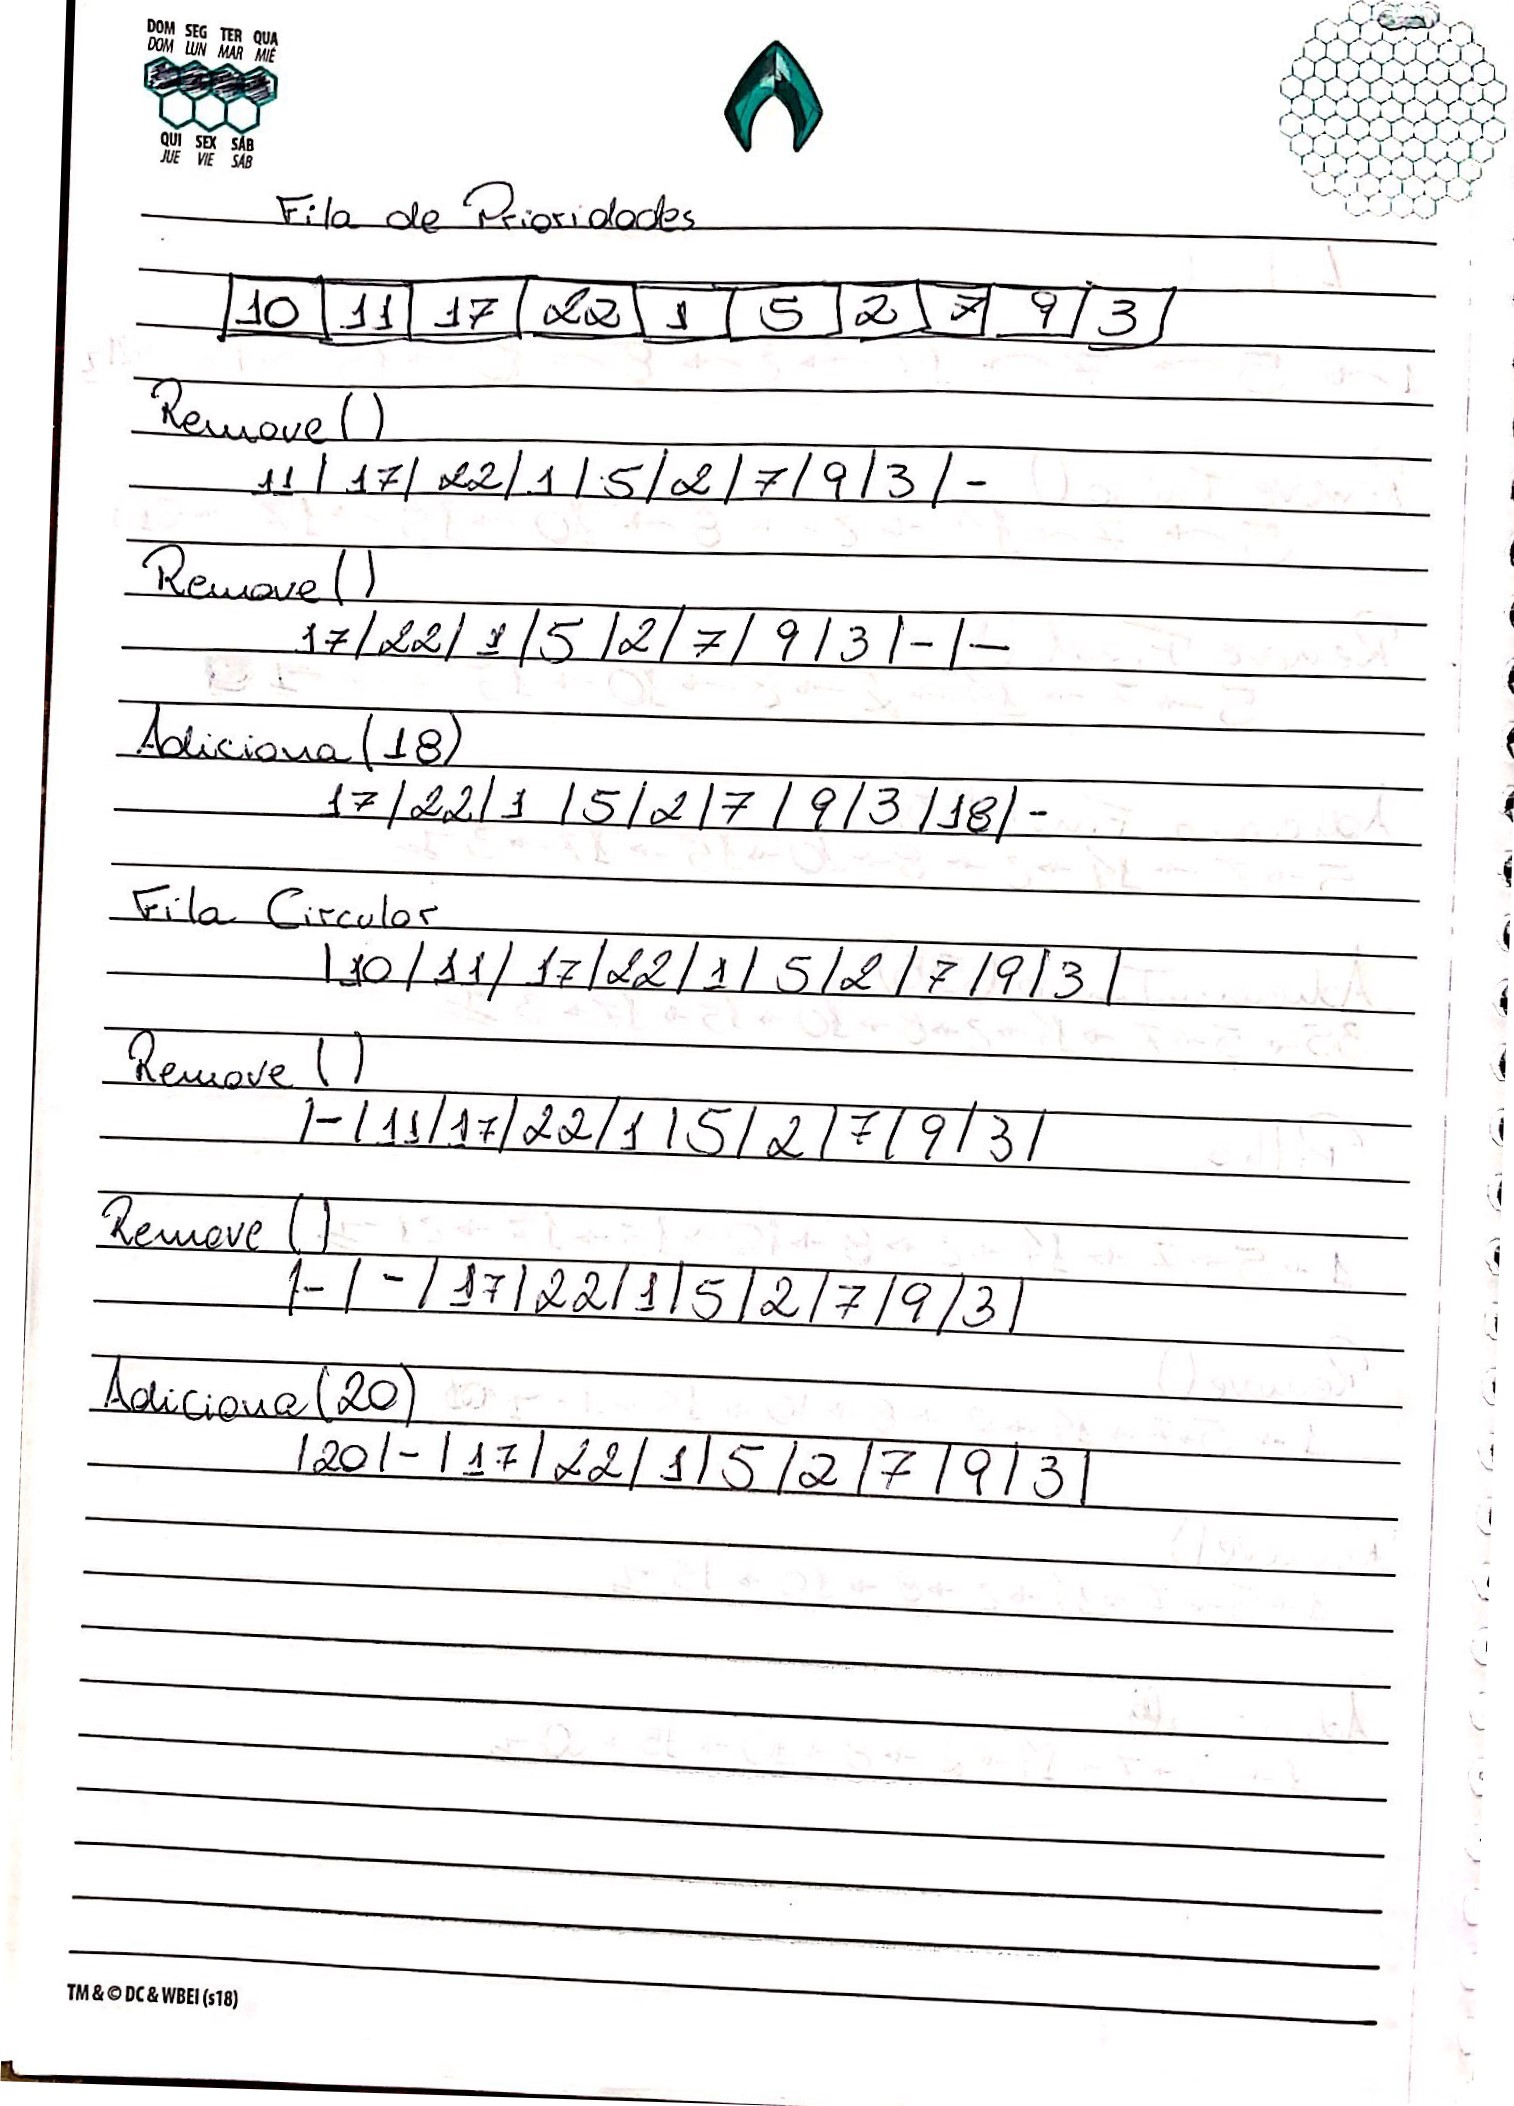 DOM SEG TER QUA
DOM LUN MAR MIÉ
QUI SEX SÁB
JUE VIE SÁB
Fila de Prioridades
|10|11|17|22|1|5|2|7|9|3|
Remove()
11|17|22|1|5|2|7|9|3|-
Remove()
17|22|1|5|2|7|9|3|-|-
Adiciona(18)
17|22|1|5|2|7|9|3|18|-
Fila Circular
|10|11|17|22|1|5|2|7|9|3|
Remove()
|-|11|17|22|1|5|2|7|9|3|
Remove()
|-|-|17|22|1|5|2|7|9|3|
Adiciona(20)
|20|-|17|22|1|5|2|7|9|3|
TM & © DC & WBEI (s18)